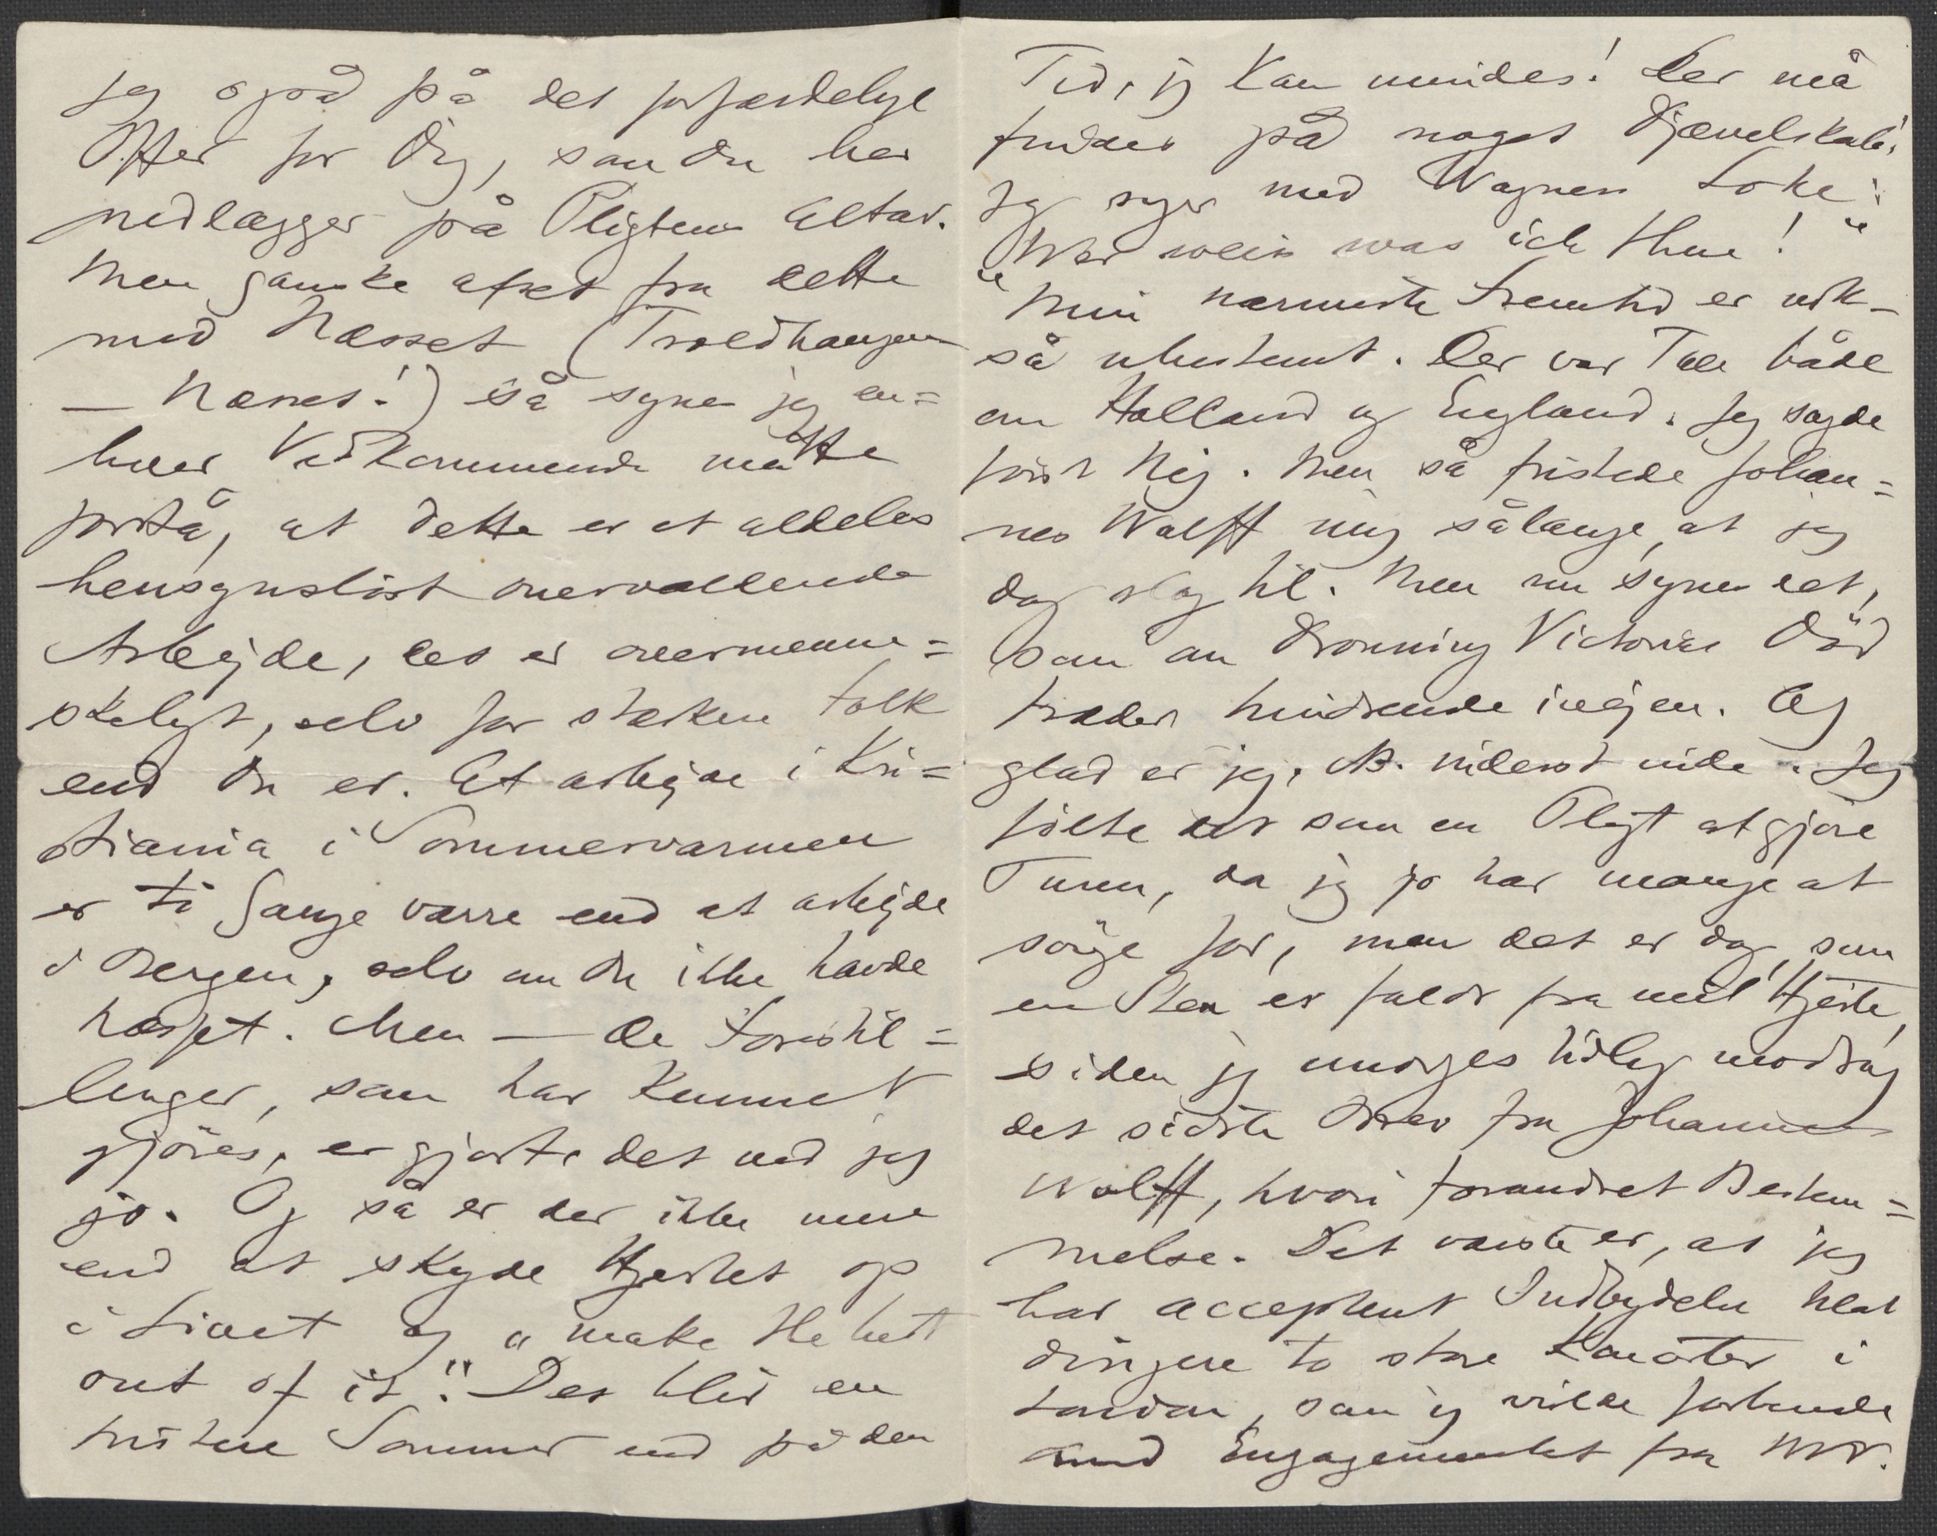 jeg også på det forfærdelige
Offer for Dig, som Du her
nedlægger på Pligtens Altar.
Men ganske afset fra dette
med Næsset (Troldhaugen
— Næsset!) så synes jeg en=
hver Vedkommende måtte
forstå, at dette er et aldeles
hensynsløst overvældende
Arbejde, des er overmenne=
skeligt, selv for stærkere Folk
end Du er. At arbejde i Kri=
stiania i Sommervarmen
er ti Gange værre end at arbejde
i Bergen, selv om Du ikke havde
Næsset. Men — de Forestil=
linger, som har kunnet
gjöres, er gjort, det ved jeg
jo. Og så er der ikke mere
end at skyde Hjertet op
i Livet og "make the best
out of it". Det blir en
tristere Sommer end på den
Tid, jeg kan mindes! Der må
findes på noget Djævelskab!
Jeg siger med Wagners Loke:
"Wer weiss was ich thue!"
Min nærmeste Fremtid er nok=
så ubestemt. Der var Tale både
om Holland og England. Jeg sagde
först Nej. Men så fristede Johan=
nes Wolff mig sålænge, at jeg
dog slog til. Men nu synes det,
som om Dronning Victorias Död
træder hindrende iveien. Og
glad er jeg, NB. inderst inde. Jeg
fölte det som en Pligt at gjöre
Turen, da jeg jo har mange at
sörge for, men det er dog, som
en Sten er faldt fra mit Hjerte,
siden jeg imorges tidlig modtog
det sidste Brev fra Johannes
Wolff, hvori forandret Bestem=
melse. Det værste er, at jeg
har accepteret Indbydelse til at
dirigere to store Koncerter i
London, som jeg vilde forbinde
med Engagementet fra